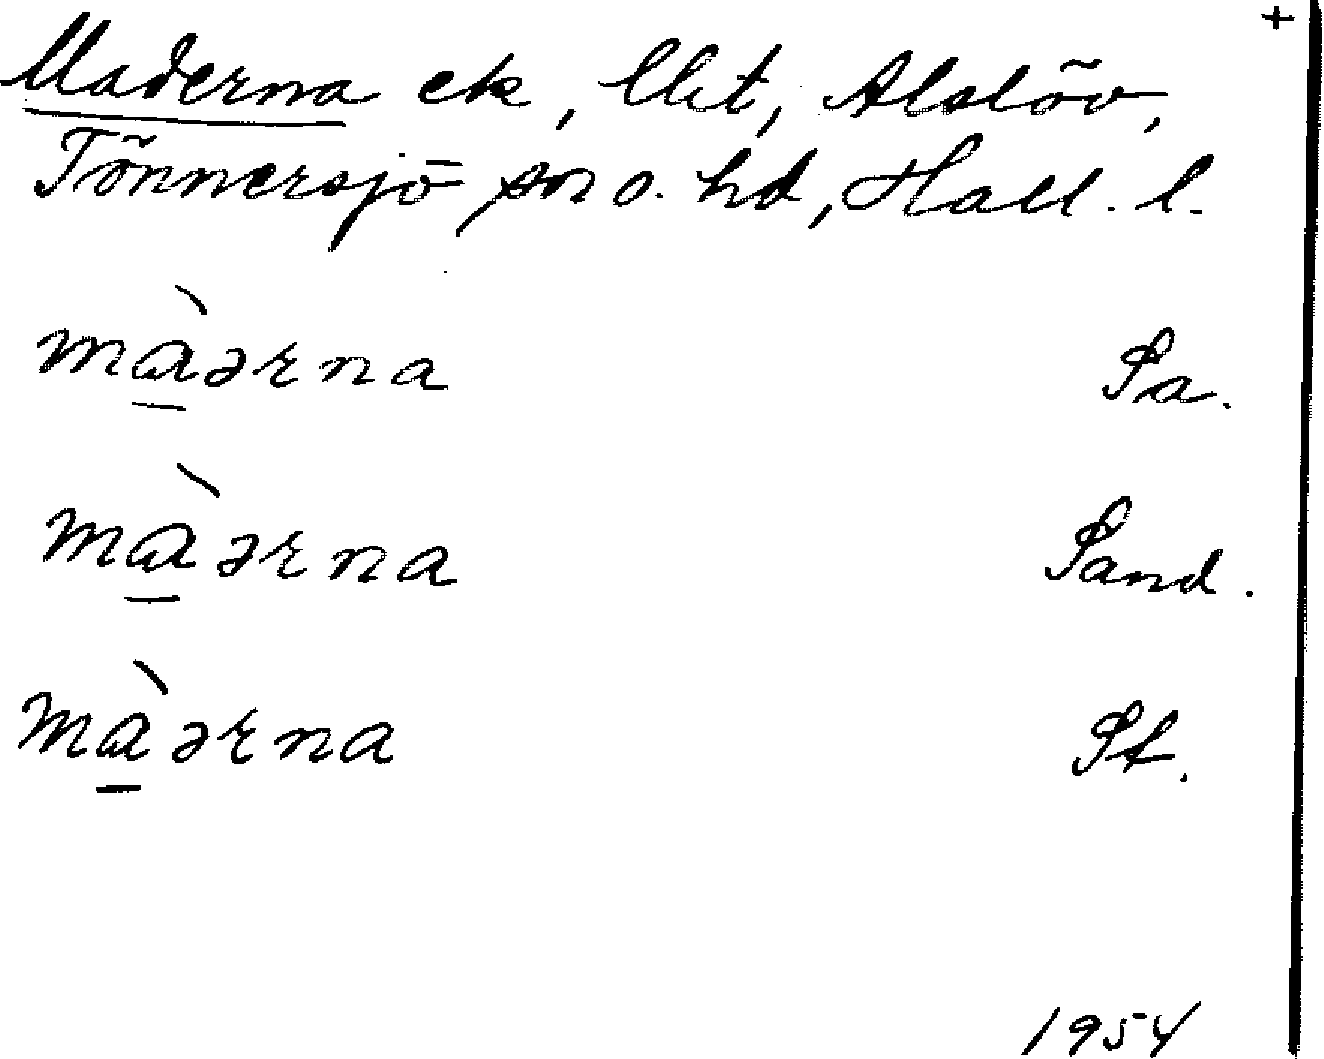 +
Maderna ek, lht, Alslöv,
Tönnersjö sn o. hd, Hall. l.
màərna Sa.
màərna Sand.
màərna St.
1954